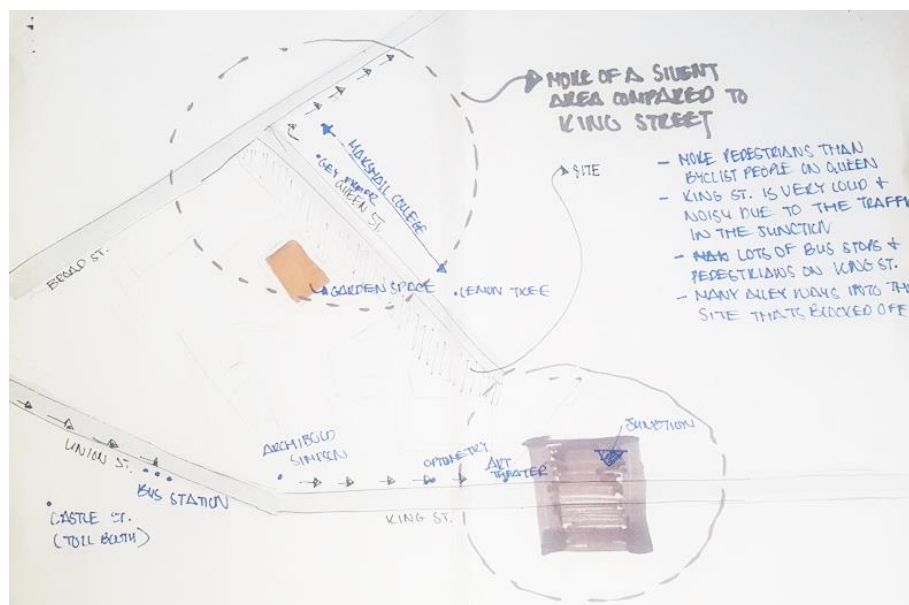 MORE OF A SILENT
AREA COMPARED TO
KING STREET
SITE
- MORE PEDESTRIANS THAN
BYCLIST PEOPLE ON QUEEN
- KING ST. IS VERY LOUD +
NOISY DUE TO THE TRAFFI
IN THE JUNCTION
- LOTS OF BUS STOPS +
PEDESTRIANS ON KING ST.
- MANY ALLEY WAYS INTO TH
SITE THATS BLOCKED OFF
MARSHALL COLLEGE
QUEEN ST.
BROAD ST.
GARDEN SPACE
LEMON TREE
UNION ST.
BUS STATION
CASTLE ST.
(TOLL BOOTH)
ARCHIBOLD
SIMPSON
OPTOMETRY
ART
THEATER
JUNCTION
KING ST.